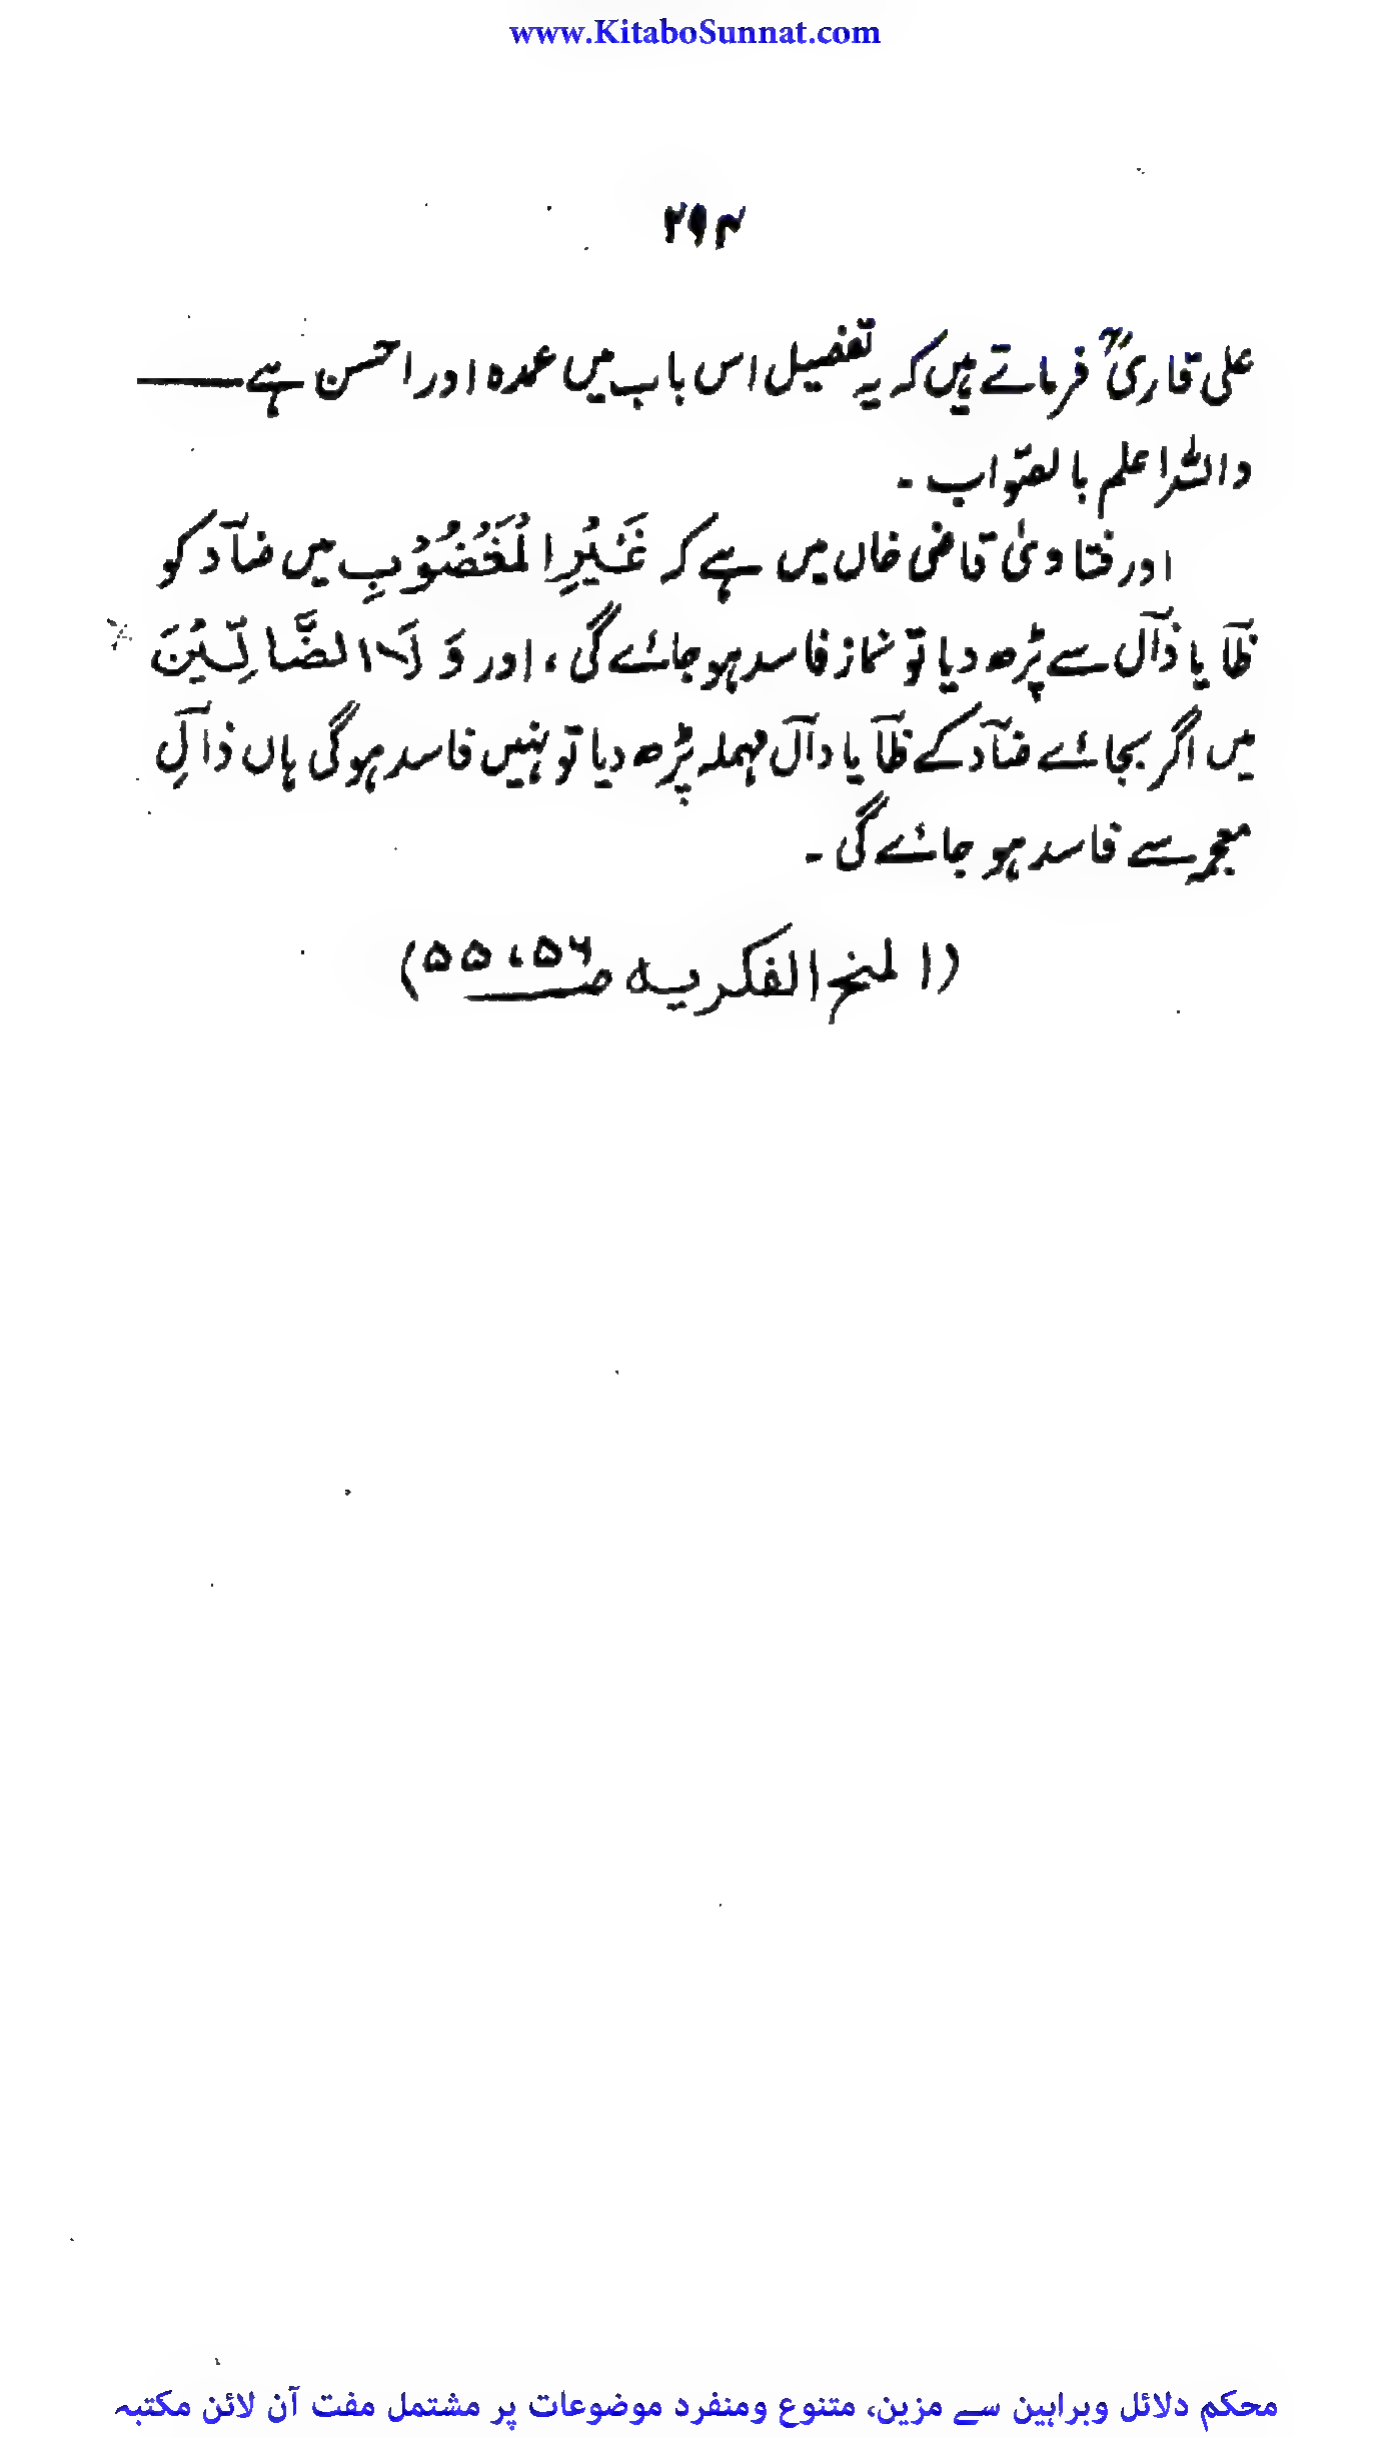 www.KitaboSunnat.com
۲۹۴
علی قاریؒ فرماتے ہیں کہ یہ تفصیل اس باب میں عمدہ اور احسن ہے ——
واللہ اعلم بالصّواب ۔
اور فتاویٰ قاضی خاں میں ہے کہ غَیْرِ الْمَغْضُوْبِ میں ضآد کو
ظآ یا ذآل سے پڑھ دیا تو نماز فاسد ہو جائے گی ، اور وَ لَا الضَّالِّیْنَ
میں اگر بجائے ضآد کے ظآ یا دآل مہملہ پڑھ دیا تو نہیں فاسد ہوگی ہاں ذآلِ
معجمہ سے فاسد ہو جائے گی ۔
(المنح الفکریہ صـ ۵۵،۵۶)
محکم دلائل وبراہین سے مزین، متنوع ومنفرد موضوعات پر مشتمل مفت آن لائن مکتبہ